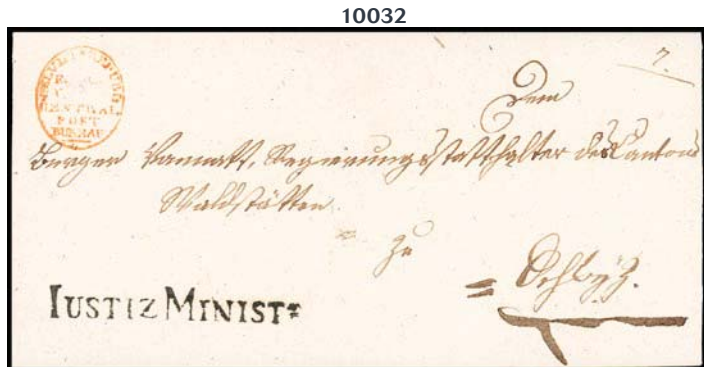 10032
7.
CENTRAL
POST
BUREAU
Dem
Burger Vonmatt, Regierungsstatthalter des Cantons
Waldstätten
= zu
= Schwyz.
IUSTIZ MINISTR